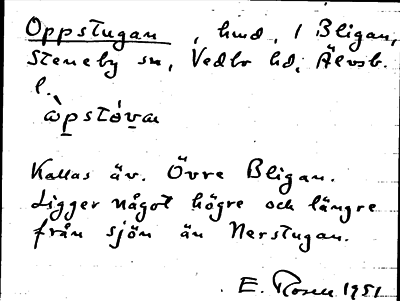 Oppstugan, hmd, i Bligan,
Steneby sn, Vedbo hd, Älvsb.
l.
Kallas äv. Övre Bligan.
Ligger något högre och längre
från sjön än Nerstugan.
E. Rosen 1951